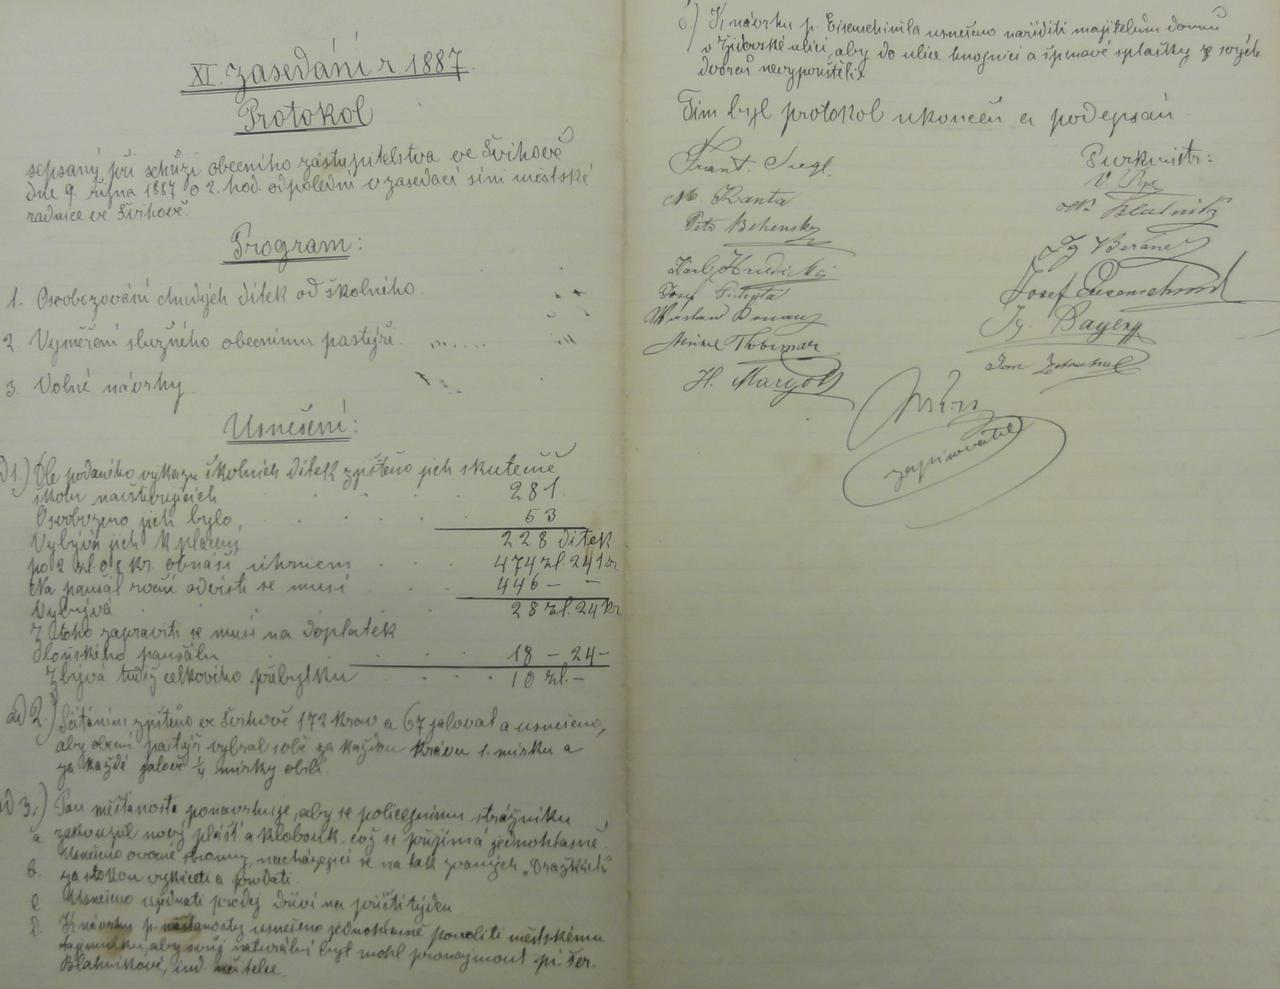 XI. zasedání r 1887.
Protokol
sepsaný při schůzi obecního zastupitelstva ve Švihově
dne 9. října 1887 o 2. hod. odpolední v zasedací síni městské
radnice ve Švihově.
Program:
1. Osvobozování chudých dítek od školného
2. Vyměření služného obecnímu pastýři.
3. Volné návrhy
Usnešení:
ad 1.) Dle podaného výkazu školních dítek zjištěno jich skutečně
školu navštěvujících 281.
Osvobozeno jich bylo, 53
Vybývá jich k placení 228 dítek
po 2 zl. 08 kr. obnáší úhrnem 474 zl. 24 kr.
Na paušál roční odvésti se musí 446 – –
Vybývá 28 zl. 24 kr
Z toho zapraviti se musí na doplatek
loňského paušálu 18 – 24 –
Zbývá tudíž celkového přebytku 10 zl. –
ad 2.) Sčítáním zjištěno ve Švihově 172 krav a 67 jalovat a usnešeno,
aby obecní pastýř vybral sobě za každou krávu 1. mírku a
za každé jalově 1/4 mírky obilí.
ad 3.) Pan měšťanosta ponavrhuje, aby se policejnímu strážníku
a zakoupil nový plášť a klobouk, což se přijímá jednohlasně.
b. Usnešeno ovocné stromy, nacházející se na tak zvaných „Dražkách"
za stokou vykáceti a prodati.
c Usnešeno ujednati prodej dříví na příští týden
d. K návrhu p. měšťanosty usnešeno jednohlasně povoliti městskému
tajemníku, aby svůj naturální byt mohl pronajmout pí. Ter.
Blahníkové, ind. učitelce.
e) K návrhu p. Eisenschimla usnešeno naříditi majitelům domů
v Židovské ulici, aby do ulice hnojnici a špinavé splašky z svých
dvorců nevypouštěli.
Tím byl protokol ukončen a podepsán
Purkmistr:
Frant. Siegl.
M. Kranta
Petr Behenský
Karl Hrudička
Josef
H. Margolt
Ig Beránek
Josef Eisenschiml
Ig. Bayer
Jan
zapisovatel